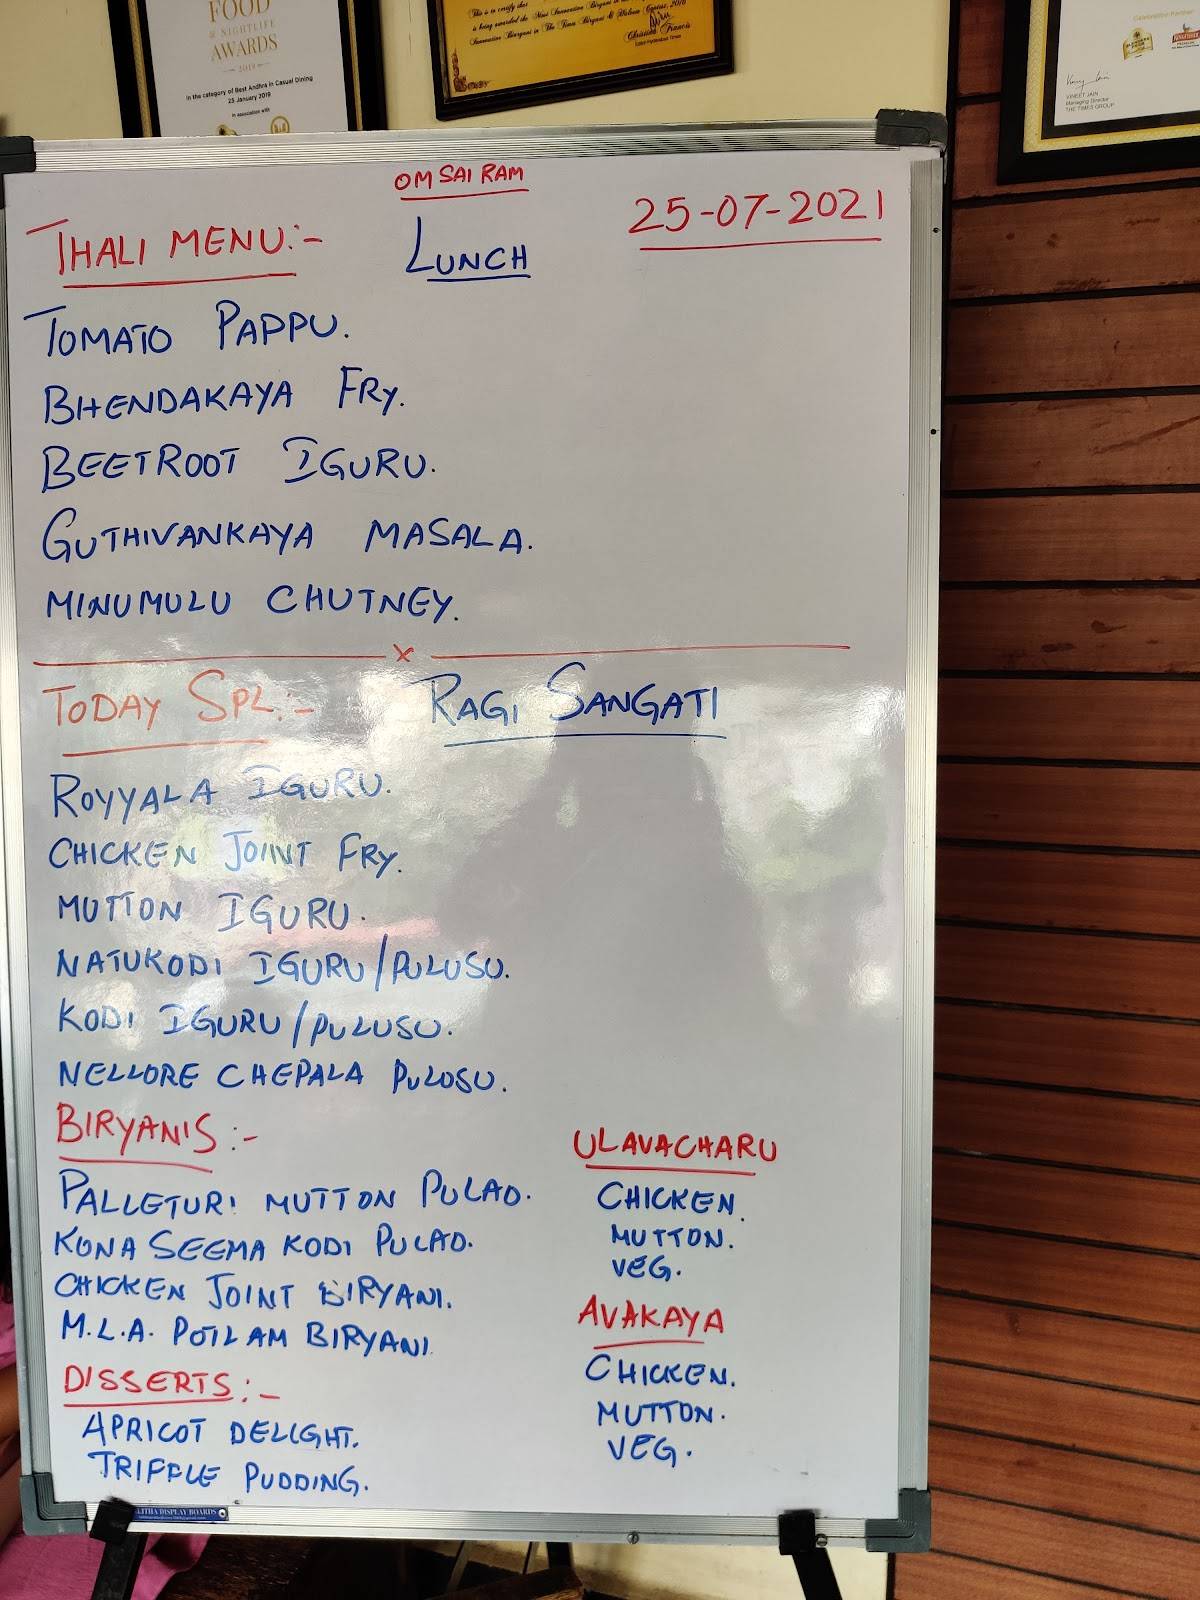 FOOD
& NIGHTLIFE
AWARDS
2019
In the category of Best Andhra in Casual Dining
25 January 2019
In association with
This is to certify that
Christina Francis
VINEET JAIN
Managing Director
THE TIMES GROUP
OM SAI RAM
THALI MENU:-
LUNCH
25-07-2021
TOMATO PAPPU.
BHENDAKAYA FRY.
BEETROOT IGURU.
GUTHIVANKAYA MASALA.
MINUMULU CHUTNEY.
x
TODAY SPL:- RAGI SANGATI
ROYYALA IGURU.
CHICKEN JOINT FRY.
MUTTON IGURU.
NATUKODI IGURU/PULUSU.
KODI IGURU/PULUSU.
NELLORE CHEPALA PULUSU.
BIRYANIS:-
PALLETURI MUTTON PULAO.
KONA SEEMA KODI PULAO.
CHICKEN JOINT BIRYANI.
M.L.A. POTLAM BIRYANI.
DISSERTS:-
APRICOT DELIGHT.
TRIFFLE PUDDING.
ULAVACHARU
CHICKEN.
MUTTON.
VEG.
AVAKAYA
CHICKEN.
MUTTON.
VEG.